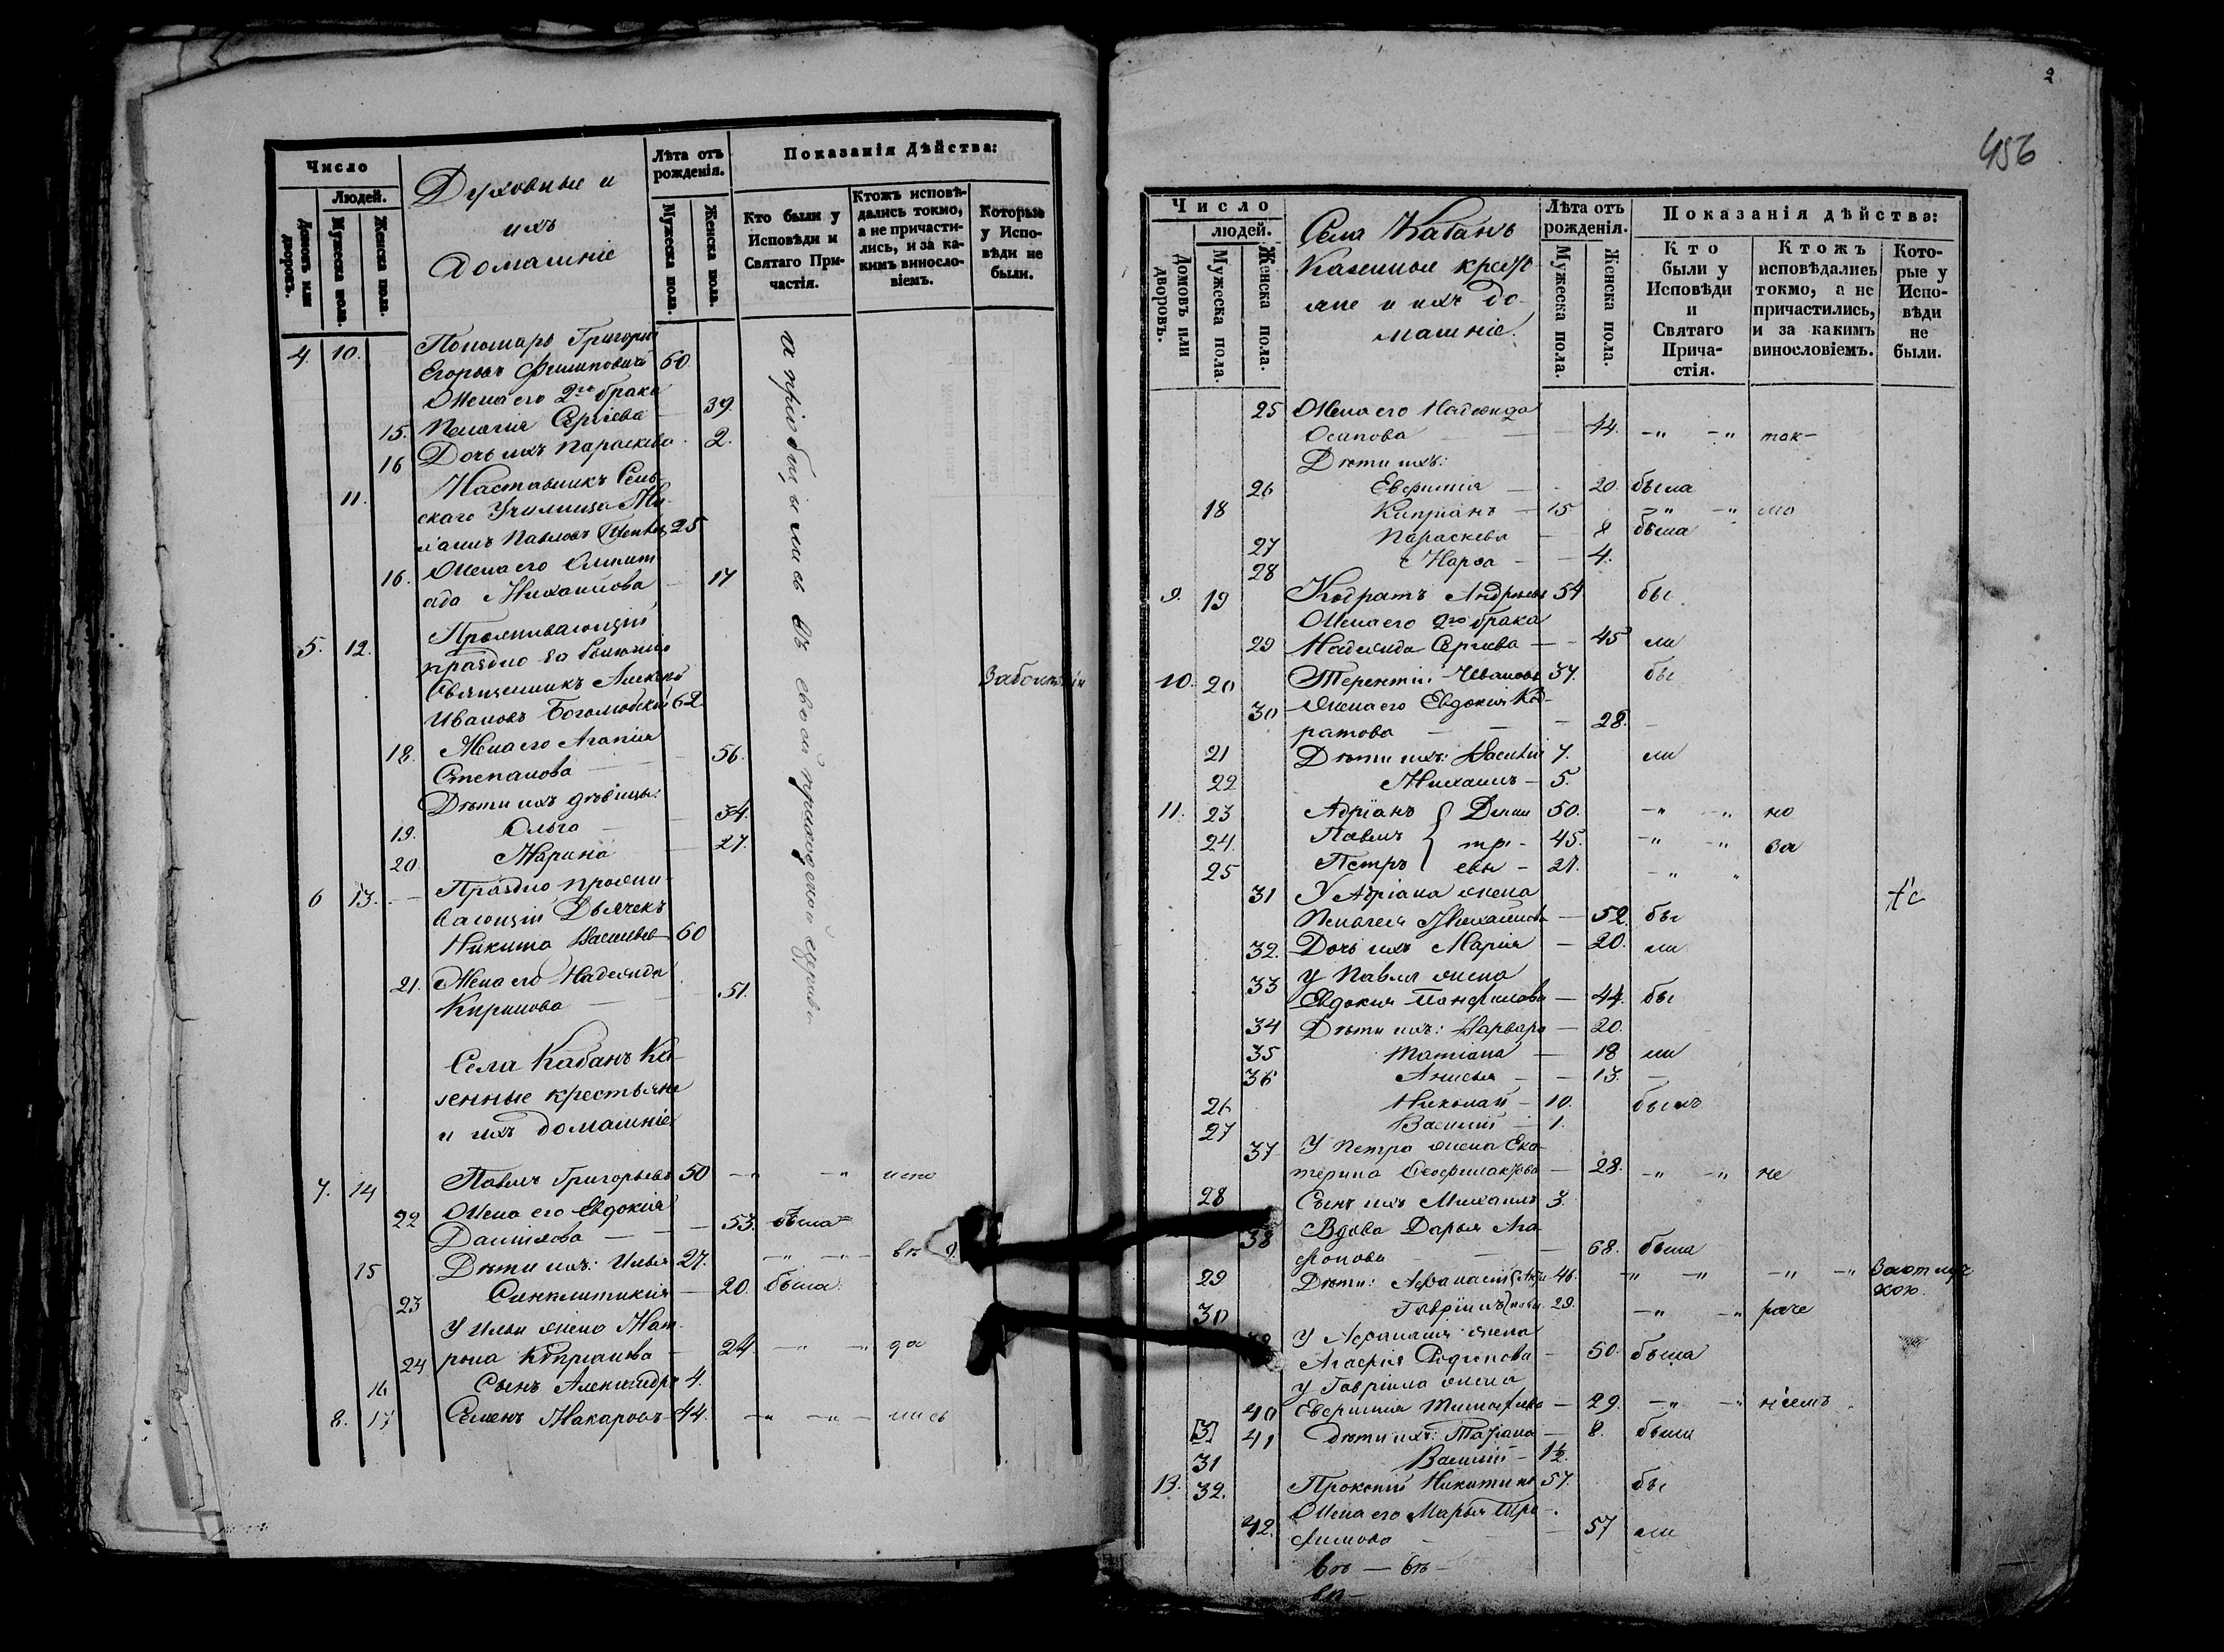 Число
Людей.
Домовъ или дворовъ.
Мужеска пола.
Женска пола.
Духовные и
ихъ
домашніе
Лѣта отъ рожденія.
Мужеска пола.
Женска пола.
Показанія Дѣйства:
Кто были у Исповѣди и Святаго Причастія.
Ктожъ исповѣдались токмо, а не причастились, и за какимъ винословіемъ.
Которые у Исповѣди не были.
4. 10. Пономарь Григорій
Егоровъ Филиповичъ 60.
Жена его 2го брака
15. Пелагія Сергіева 39.
16 Дочь ихъ Параскева 2.
11. Наставникъ Сель-
скаго Училища Ми-
хаилъ Павловъ 25
16. Жена его
Михаилова 17
5. 12. Проживающій
праздно за болезнію
Священникъ Алексѣй
Ивановъ Боголюбскій 62.
18. Жена его Агапія
Степанова 56.
Дѣти ихъ дѣвицы:
19. Ольга 34.
20. Марина 27.
6 13. Праздно прожи-
вающій Дьячекъ
Никита Васильев 60
21. Жена его Надежда
Кирилова 51.
въ своей приходской церкви
Села Кабанъ Ка-
зенные крестьяне
и ихъ домашніе
7. 14 Павелъ Григорьевъ 50 -"- -" испо
22 Жена его Евдокія
Данилова 53. была
15 Дѣти ихъ: Илья 27. -"- -"- вѣ
23 Синклитикія 20. была
У Ильи жена Мат-
24 рона Кипріанова 24. -"- -" да
16 Сынъ Александръ 4.
8. 17 Семенъ Макаровъ 44. -"- -"- лись
2
456
Число
людей.
Домовъ или дворовъ.
Мужеска пола.
Женска пола.
Села Кабанъ
Казенные кресть-
яне и ихъ до-
машніе.
Лѣта отъ рожденія.
Мужеска пола.
Женска пола.
Показанія дѣйства:
Кто были у Исповѣди и Святаго Причастія.
Ктожъ исповѣдались токмо, а не причастились, и за какимъ винословіемъ.
Которые у Исповѣди не были.
25 Жена его Надежда
Осипова 44. -" -" ток-
Дѣти ихъ:
26 Евфимія 20. была
18 Кипріанъ 15 -" -" мо
27 Параскева 8 была
28 Марѳа 4.
9. 19 Кодратъ Андреевъ 54 бы
Жена его 2го брака
29 Надежда Сергіева 45 ли
10. 20 Терентій Ивановъ 37. бы
30 Жена его Евдокія Код-
ратова 28.
21 Дѣти ихъ: Василій 7. ли
22 Михаилъ 5.
11. 23 Адріанъ Дими 50. -" -" но
24. Павелъ трі- 45. -" -" за
25 Петръ евы 27. -" "
31 У Адріана жена
Пелагея Михайлова 52. бы
32. Дочь ихъ Марія 20. ли
33 У Павла жена
Евдокія Панфилова 44. бы
34 Дѣти ихъ: Варвара 20.
35 Татіана 18 ли
36 Анисья 13.
26 Николай 10. былъ
27 Василій 1.
37 У Петра жена Ека-
терина Ѳеофилактова 28. -" -" не
28 Сынъ ихъ Михаилъ 3.
38 Вдова Дарья Ага-
фонова 68. была
29 Дѣти: Афанасій 46. -" -" -" -"
30 Гавріилъ 29. -" -" раче
У Афанасія жена
Агафія Родіонова 50. была
У Гавріила жена
40 Евфимія Тимофеева 29. -" -" ніемъ
[3] 41 Дѣти ихъ: Татіана 8. была
31 Василій 1½.
13. 32. Прокопій Никитинъ 57. бы
42. Жена его Марья Тро-
фимова 57 ли